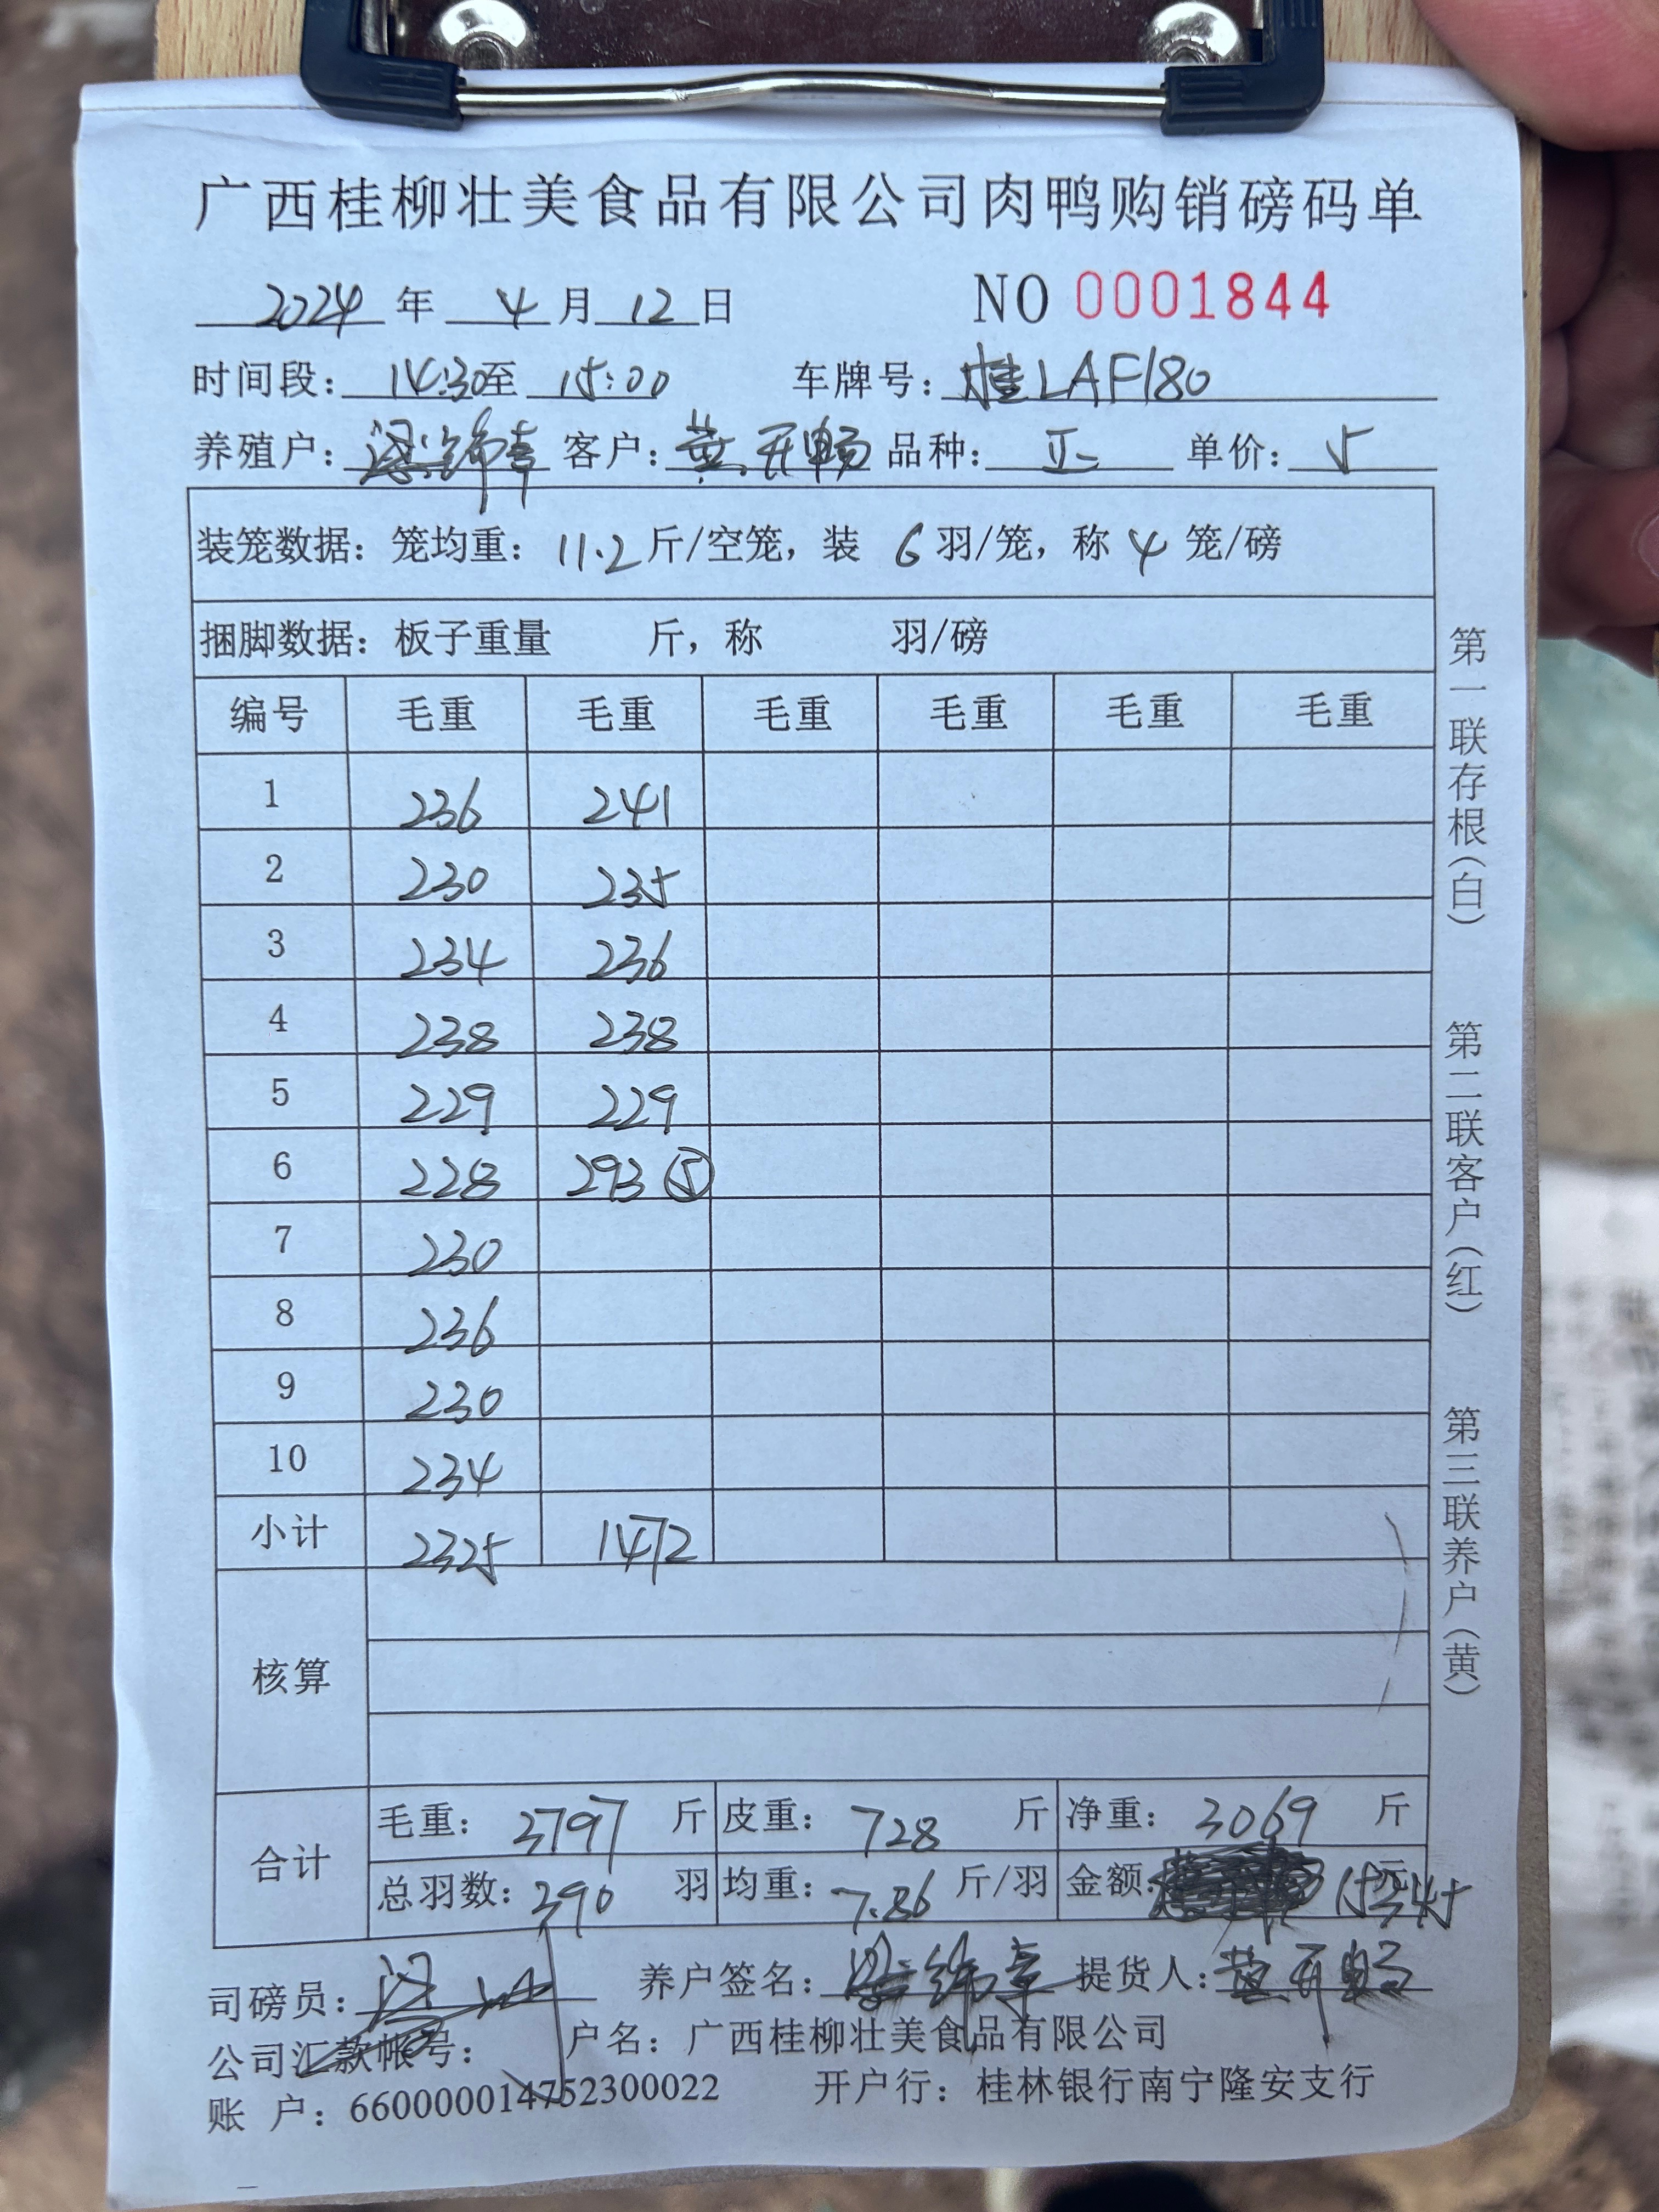 广西桂柳壮美食品有限公司肉鸭购销磅码单
2024 年 4 月 12 日 NO 0001844
时间段: 14:30 至 15:00 车牌号: 桂LAF180
养殖户: 客户: 黄开畅 品种: 正 单价: 5
装笼数据: 笼均重: 11.2 斤/空笼, 装 6 羽/笼, 称 4 笼/磅
捆脚数据: 板子重量 斤, 称 羽/磅
编号 毛重 毛重 毛重 毛重 毛重 毛重
1 236 241
2 230 235
3 234 236
4 238 238
5 229 229
6 228 293 ⑤
7 230
8 236
9 230
10 234
小计 2325 1472
核算
合计 毛重: 3797 斤 皮重: 728 斤 净重: 3069 斤
总羽数: 390 羽 均重: 7.86 斤/羽 金额: 15345 元
司磅员: 养户签名: 提货人: 黄开畅
公司汇款帐号: 户名: 广西桂柳壮美食品有限公司
账 户: 660000014752300022 开户行: 桂林银行南宁隆安支行
第一联存根(白) 第二联客户(红) 第三联养户(黄)